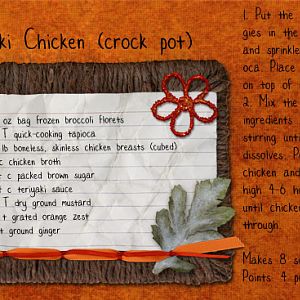 ki Chicken (crock pot)
oz bag frozen broccoli florets
T quick-cooking tapioca
lb boneless, skinless chicken breasts (cubed)
c chicken broth
c packed brown sugar
c teriyaki sauce
T dry ground mustard
t grated orange zest
t ground ginger
1. Put the
gies in the
and sprinkle
oca. Place
on top of
2. Mix the
ingredients
stirring unt
dissolves. P
chicken and
high 4-6 h
until chicken
through.
Makes 8 s
Points: 4 p